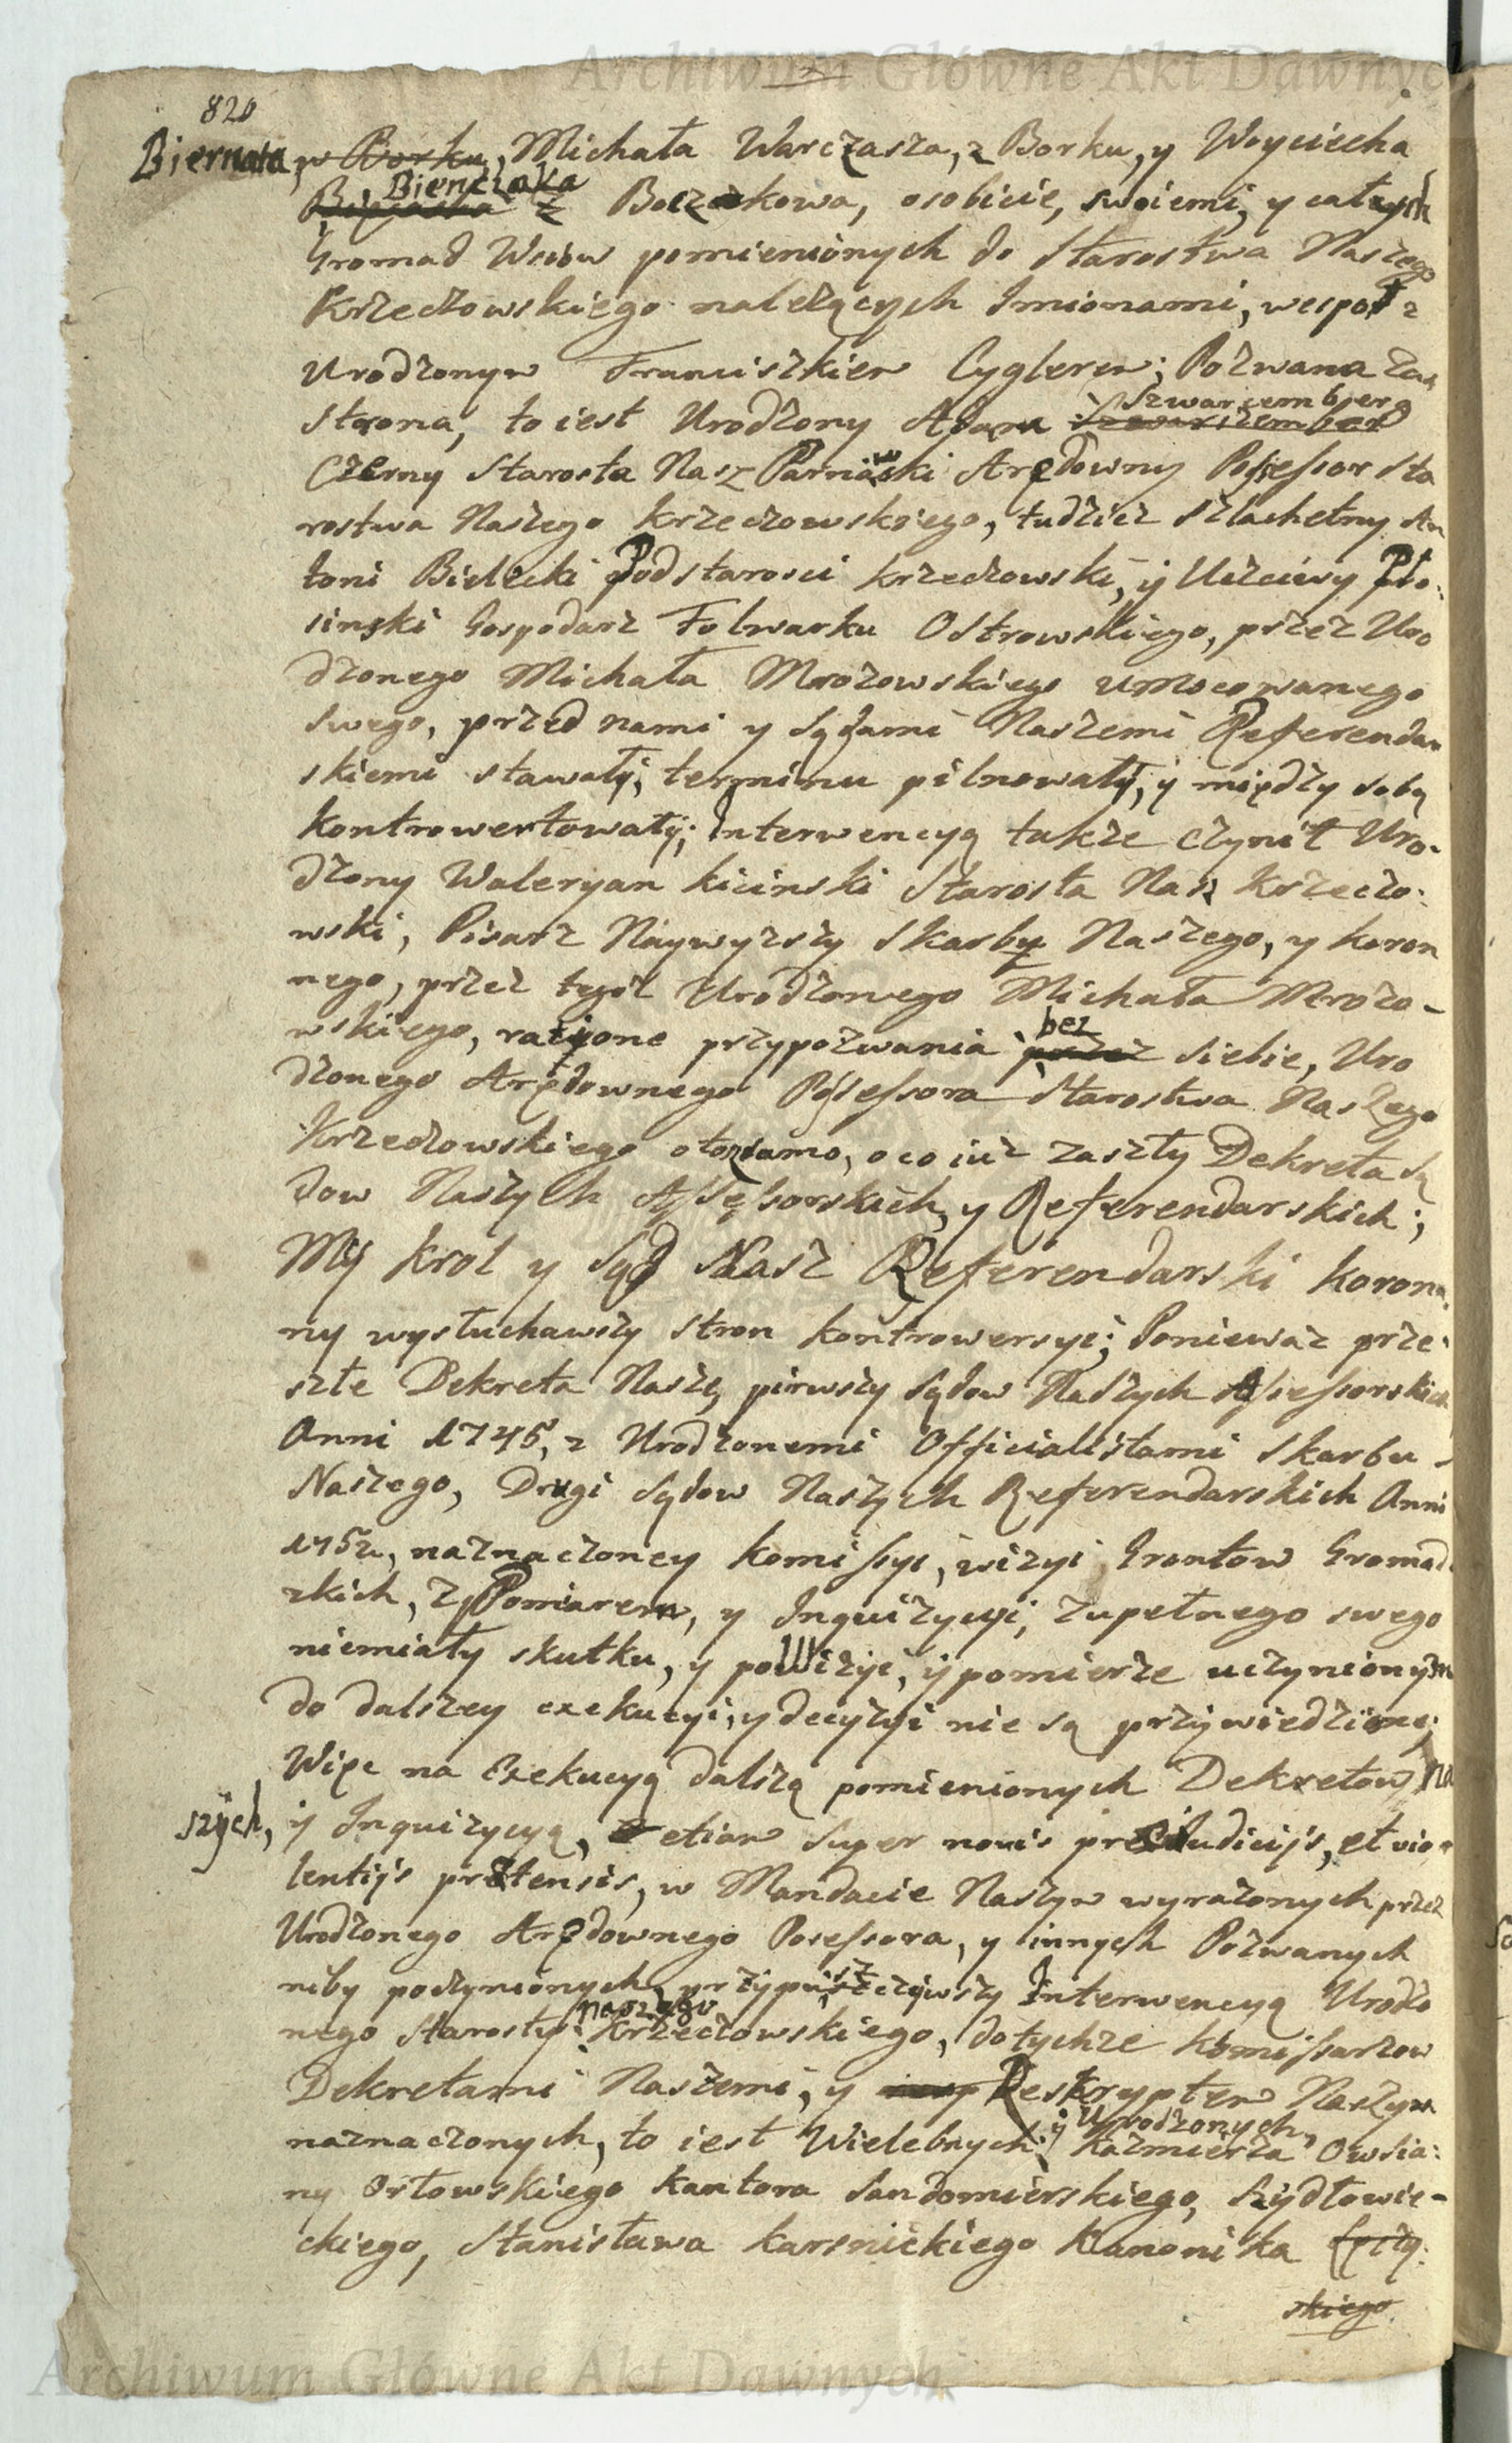 Archiwum Główne Akt Dawnych
820
Biernata, w Borku, Michała Warczasza, z Borku, y Woyciecha
Bienciaka
z Boczakowa, osobicie, swoiemi, y całych
Gromad Wsiow pomienionych do Starostwa Naszego
Krzeczowskiego należących Jmionami, wespoł z
Urodzonym Franciszkiem Cyglerem; Pozwana zaś
Szwarcemberg
Strona, to iest Urodzony Adam Szwarzemberg
Czerny Starosta Nasz Parnawski Arędowny Possessor Sta
rostwa Naszego Krzeczowskiego, tudziez Szlachetny An
toni Bielecki Podstarosci Krzeczowski, y Uczciwy Pło:
sinski Gospodarz Folwarku Ostrowskiego, przez Uro
dzonego Michała Mrozowskiego umocowanego
swego, przed nami y Sądami Naszemi Referendar
skiemi stawały, terminu pilnowały, y między sobą
kontrowertowały; Jnterwencyą także czynił Uro-
dzony Waleryan Kicinski Starosta Nasz Krzeczo:
wski, Pisarz Naywyzszy Skarbu Naszego, y Koron
nego, przez tegoż Urodzonego Michała Mrozo-
wskiego, ratione przypozwania
bez
przez siebie, Uro
dzonego Arędownego Possessora Starostwa Naszego
Krzeczowskiego otozsamo, o co iuż zaszły Dekreta Są
dow Naszych Assessorskich, y Referendarskich;
My Krol y Sąd Nasz Referendarski Koron
ny wysłuchawszy stron kontrowersyi; Ponieważ prze:
szłe Dekreta Nasze, pirwszy Sądow Naszych Assessorskich
Anni 1745, z Urodzonemi Officialistami Skarbu
Naszego, Drugi Sądow Naszych Referendarskich Anni
1752, naznaczoney Komissyi, wizyi Grontow Gromadz
zkich, z Pomiarem, y Jnquizycyi, zupełnego swego
niemiały skutku, y po wizyi, y pomierze uczynionym
do dalszey exekucyi, y decyzyi nie są przywiedzione;
Więc na Exekucyą dalszą pomienionych Dekretow na
szych, y Jnquizycyą, etiam super novis praeiudicijs, et vio
lentijs praetensis, w Mandacie Naszym wyrażonych przez
Urodzonego Arędownego Possessora, y innych Pozwanych
niby poczynionych, przypusczczywszy Jnterwencyą Urodzo
naszego
nego Starosty Krzeczowskiego, do tychże Komissarzow
Dekretami Naszemi, y Reskryptem Naszym
y Urodzonych
naznaczonych, to iest Wielebnych Kaźmierza Owsia:
ny Orłowskiego Kantora Sandomierskiego, Szydłowie-
ckiego, Stanisława Karsnickiego Kanonika
skiego
Archiwum Główne Akt Dawnych